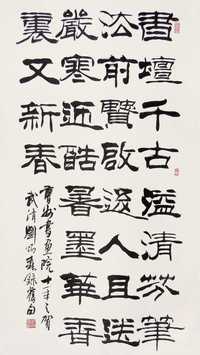 書壇千古溢清芬筆
法前賢啟後人且送
嚴寒迎酷暑墨華香
裏又新春
曹州書畫院十年之賀
武清劉炳森錄舊句